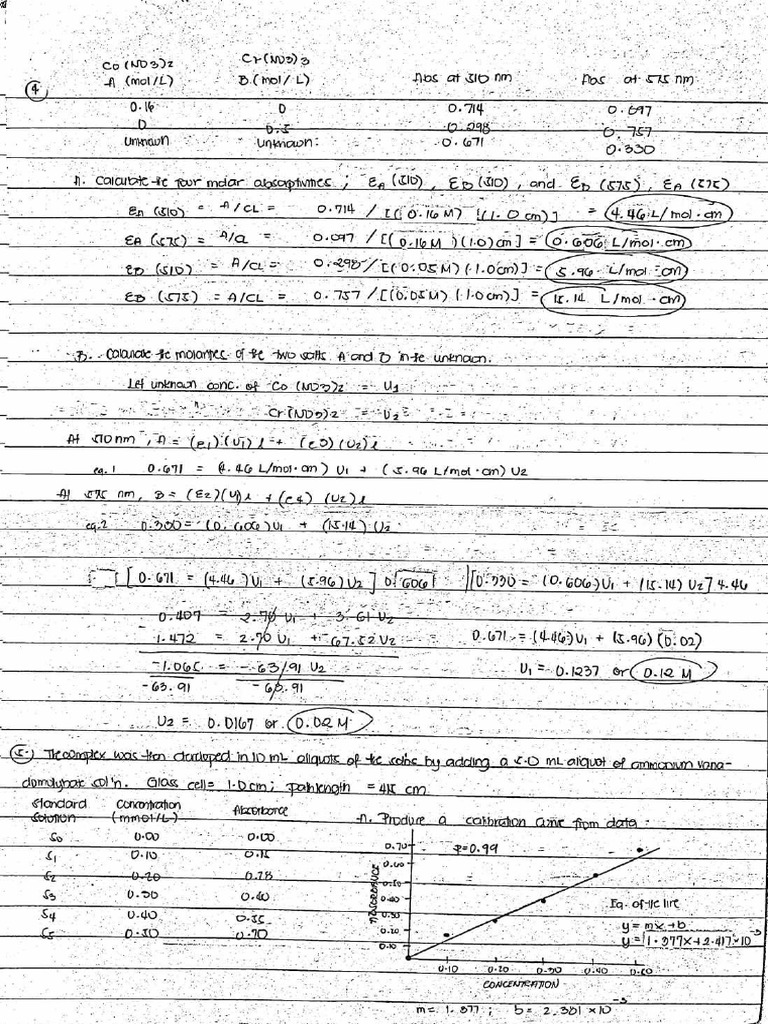 Co(NO3)2 Cr(NO3)3
④ A (mol/L) B (mol/L) Abs at 510 nm Abs at 575 nm
0.16 0 0.714 0.097
0 0.5 0.298 0.757
Unknown Unknown: 0.671 0.330
A. Calculate the four molar absorptivities; εA (510), εB (510), and εB (575), εA (575)
εA (510) = A/CL = 0.714 / [(0.16M) (1.0 cm)] = 4.46 L/mol·cm
εA (575) = A/CL = 0.097 / [(0.16M)(1.0)cm] = 0.606 L/mol·cm
εB (510) = A/CL = 0.298 / [(0.05M)(1.0cm)] = 5.96 L/mol·cm
εB (575) = A/CL = 0.757 / [(0.05M)(1.0cm)] = 15.14 L/mol·cm
B. Calculate the molarities of the two salts A and B in the unknown.
Let unknown conc. of Co(NO3)2 = U1
Cr(NO3)2 = U2
At 510nm, A = (ε1)(U1)l + (ε3)(U2)l
eq. 1 0.671 = (4.46 L/mol·cm) U1 + (5.96 L/mol·cm) U2
At 575 nm, B = (ε2)(U1)l + (ε4)(U2)l
eq. 2 0.300 = (0.606)U1 + (15.14)U2
[0.671 = (4.46)U1 + (5.96)U2] 0.606 [0.330 = (0.606)U1 + (15.14)U2] 4.46
0.407 = 2.70 U1 + 3.61 U2
1.472 = 2.70 U1 + 67.52 U2 0.671 = (4.46)U1 + (5.96)(0.02)
-1.065 = -63.91 U2 U1 = 0.1237 or 0.12 M
-63.91 -63.91
U2 = 0.0167 or 0.02 M
5.) The complex was then developed in 10 mL aliquots of the solns by adding a 5.0 mL aliquot of ammonium vana-
domolybate sol'n. Glass cell = 1.0cm; pathlength = 415 cm.
Standard Solution Concentration (mmol/L) Absorbance A. Produce a calibration curve from data:
S0 0.00 0.00
S1 0.10 0.15
S2 0.20 0.28
S3 0.30 0.40
S4 0.40 0.55
S5 0.50 0.70
ABSORBANCE
0.70
0.60
0.50
0.40
0.30
0.20
0.10
r=0.99
Eq. of the line
y = mx + b
y = 1.377x + 2.417x10⁻³
0.10 0.20 0.30 0.40 0.50
CONCENTRATION
m = 1.377; b = 2.381 x10⁻³